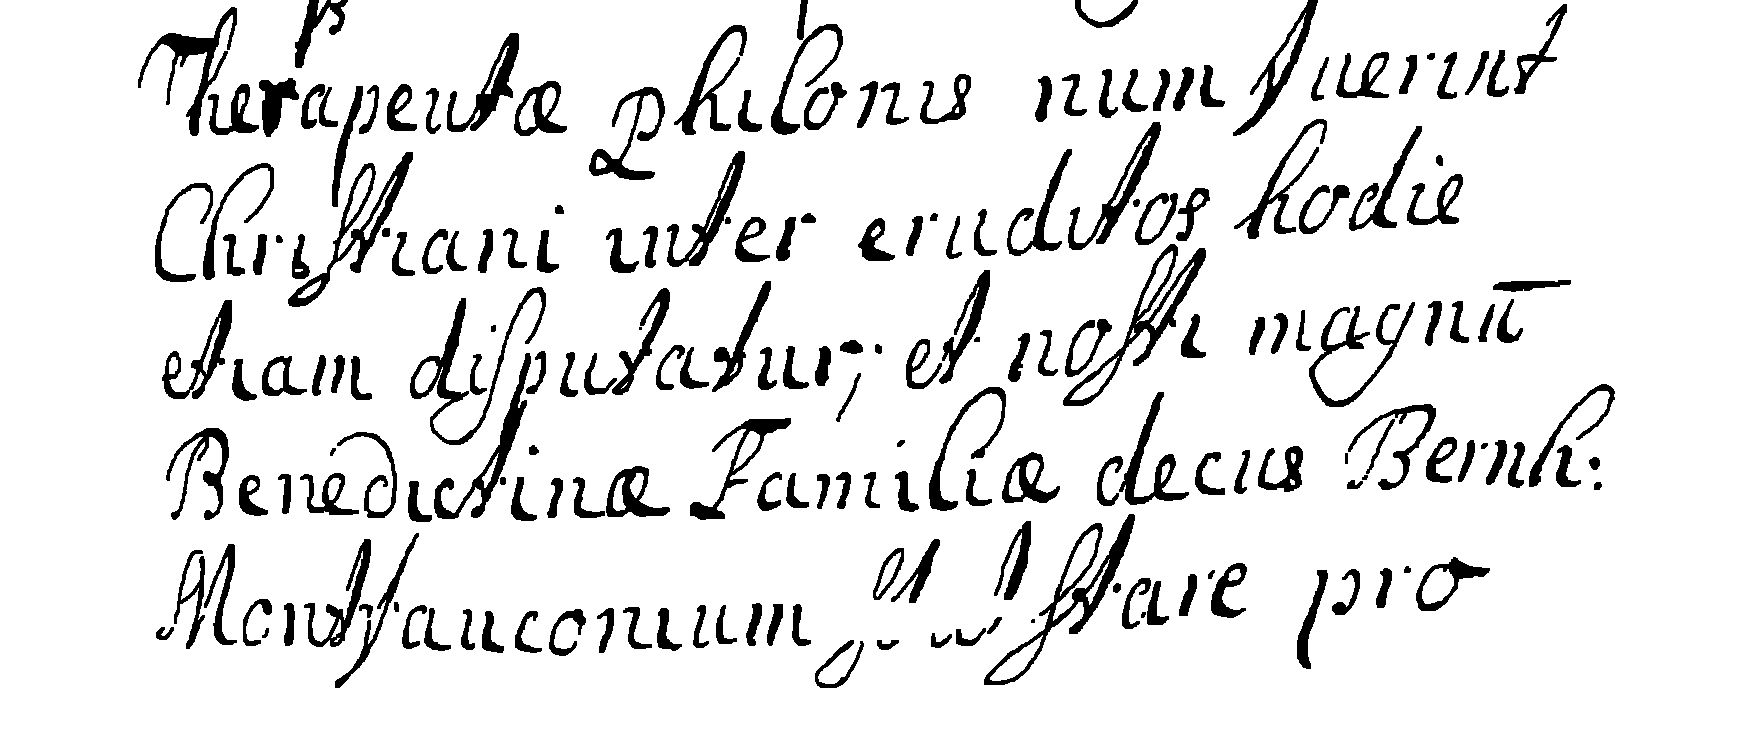 Therapeutæ Philonis num fuerint
Chriſtiani inter eruditos hodie
etiam diſputatur; et noſti magnū
Benedictinæ Familiæ decus Bernh:
Montfauconium ſtare pro